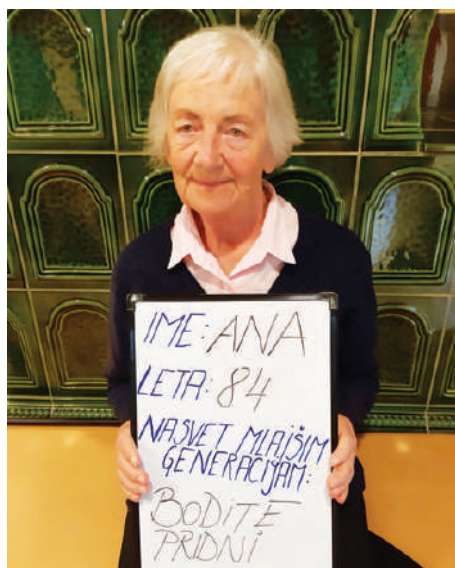 IME: ANA
LETA: 84
NASVET MLAJŠIM
GENERACIJAM:
BODITE
PRIDNI